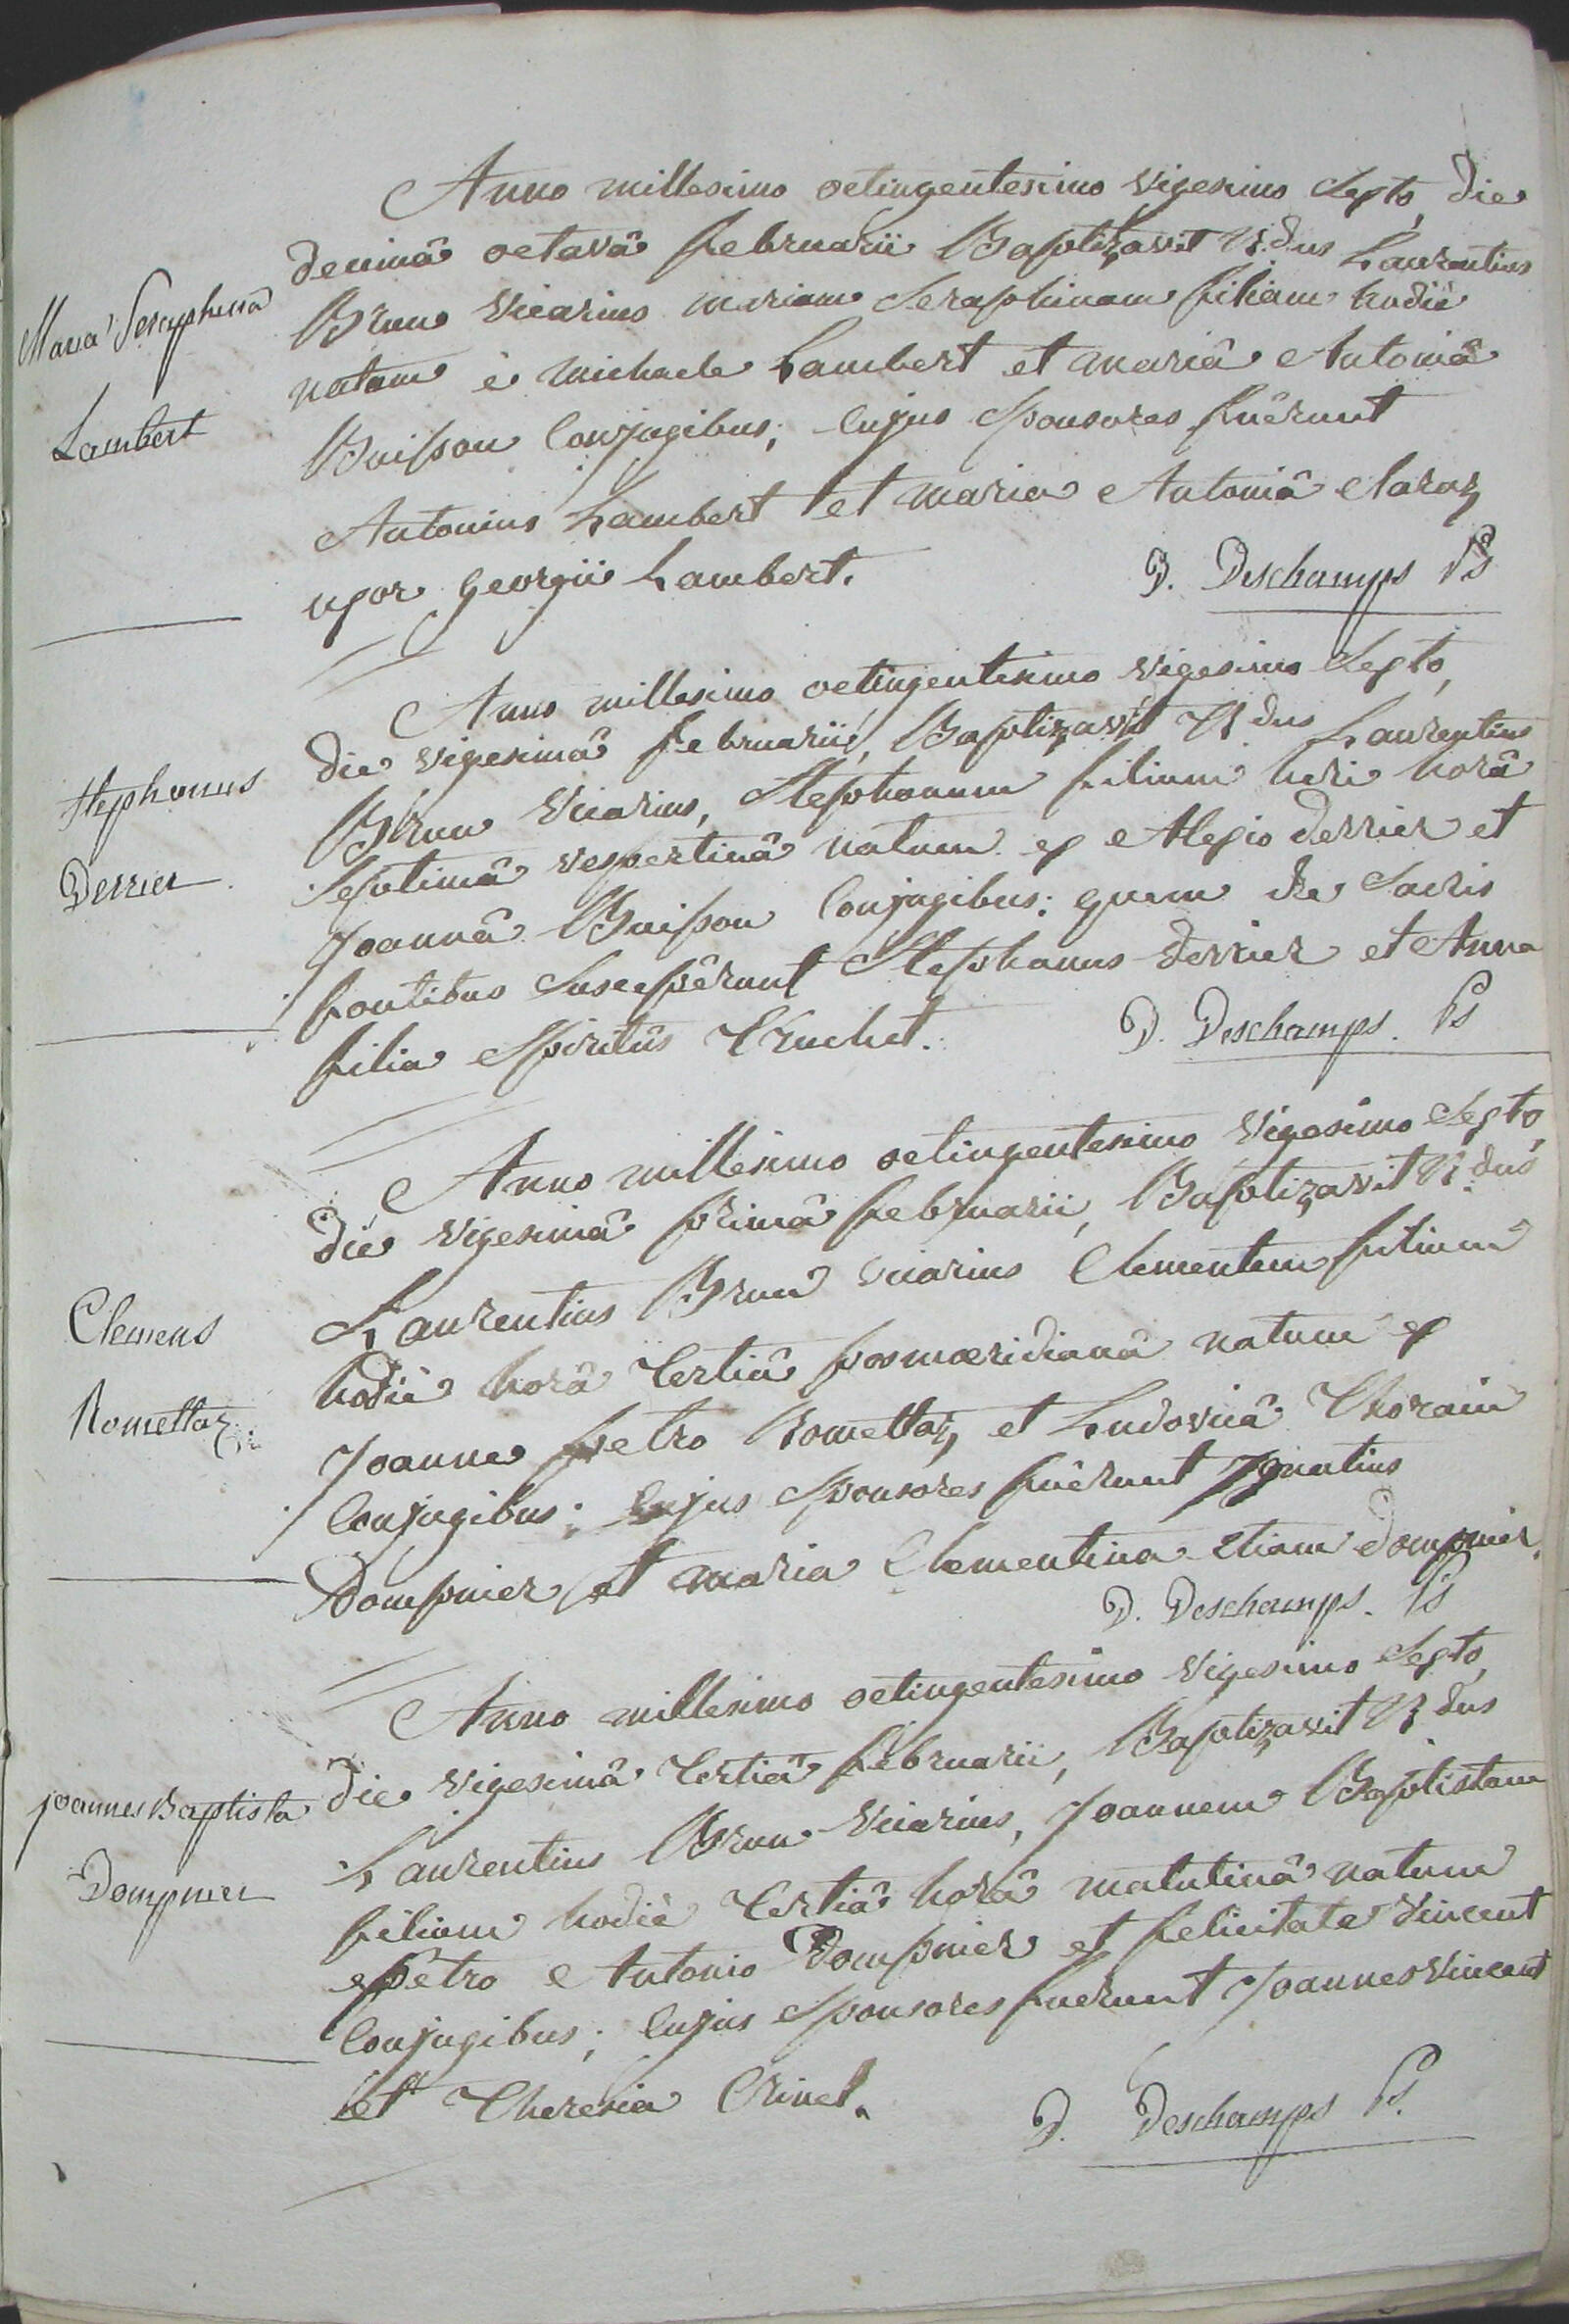 Anno millesimo octingentesimo vigesimo sexto, die
decimâ octavâ februarii Baptizavit R.dus Laurentius
Maria Seraphina
Brun vicarius mariam Seraphinam filiam hodiè
natam è michaele Lambert et mariâ Antoniâ
Lambert
Buisson Conjugibus; Cujus Sponsores fuêrunt
Antonius Lambert et maria Antoniâ Claraz
uxor georgii Lambert.
D. Deschamps Ps
Anno millesimo octingentesimo vigesimo Sexto,
die vigesimâ februarii, Baptizavit R.dus Laurentius
Stephanus
Brun Vicarius, Stephanum filium heri horâ
Septimâ vespertinâ natum ex Alexio Derrier et
Derrier
Joannâ Buisson Conjugibus: quem de Sacris
fontibus Suscepêrunt Stephanus Derrier et Anna
filia Spiritûs Truchet.
D. Deschamps. Ps
Anno millesimo octingentesimo vigesimo Sexto,
die vigesimâ primâ februarii, Baptizavit R.dus
Laurentius Brun vicarius Clementem filium
Clemens
hodiè horâ tertiâ posmoeridianâ natum ex
Joanne petro Romettaz et Ludovicâ Thorain
Romettaz
Conjugibus; Cujus Sponsores fuêrunt Ignatius
Dompnier et maria Clementina etiam Dompnier.
D. Deschamps. Ps
Anno millesimo octingentesimo vigesimo Sexto,
die vigesimâ tertiâ februarii, Baptizavit R.dus
joannes Baptista
Laurentius Brun Vicarius, Joannem Baptistam
filium hodiè tertiâ horâ matutinâ natum
Dompnier
ex petro Antonio Dompnier et felicitate Vincent
Conjugibus; Cujus Sponsores fuerunt Joannes Vincent
et Theresia Crinel.
D. Deschamps Ps.